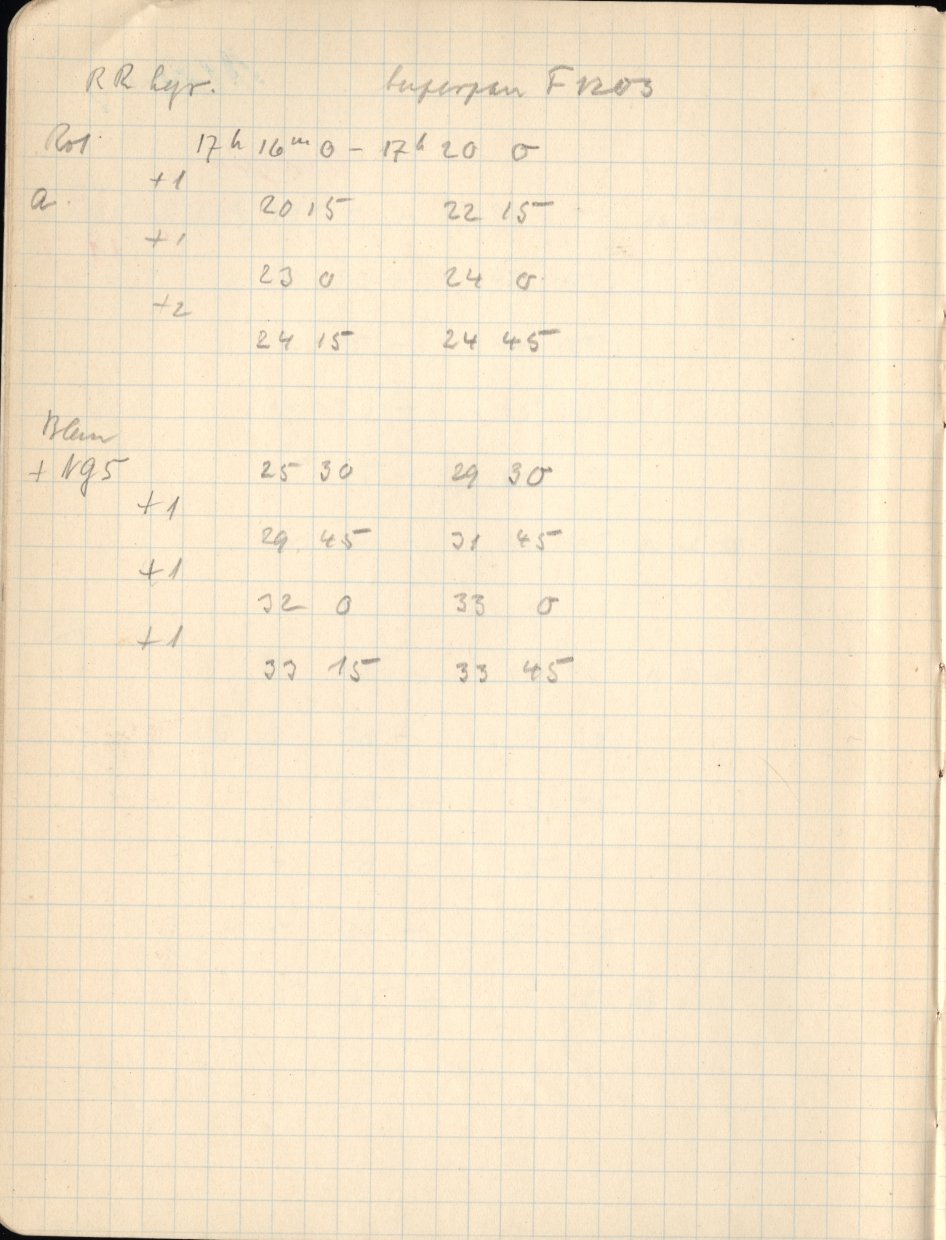 RR Lyr. Superpan F 1203
Rot 17h 16m 0 - 17h 20 0
+1
a. 20 15 22 15
+1
23 0 24 0
+2
24 15 24 45
Blau
+ NG5 25 30 29 30
+1
29 45 31 45
+1
32 0 33 0
+1
33 15 33 45